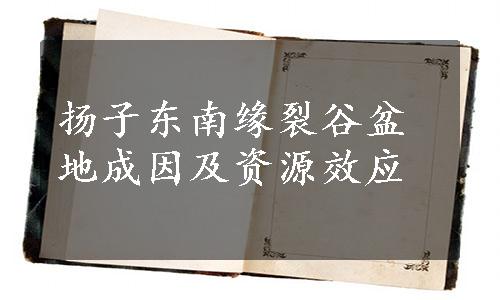 扬子东南缘裂谷盆
地成因及资源效应